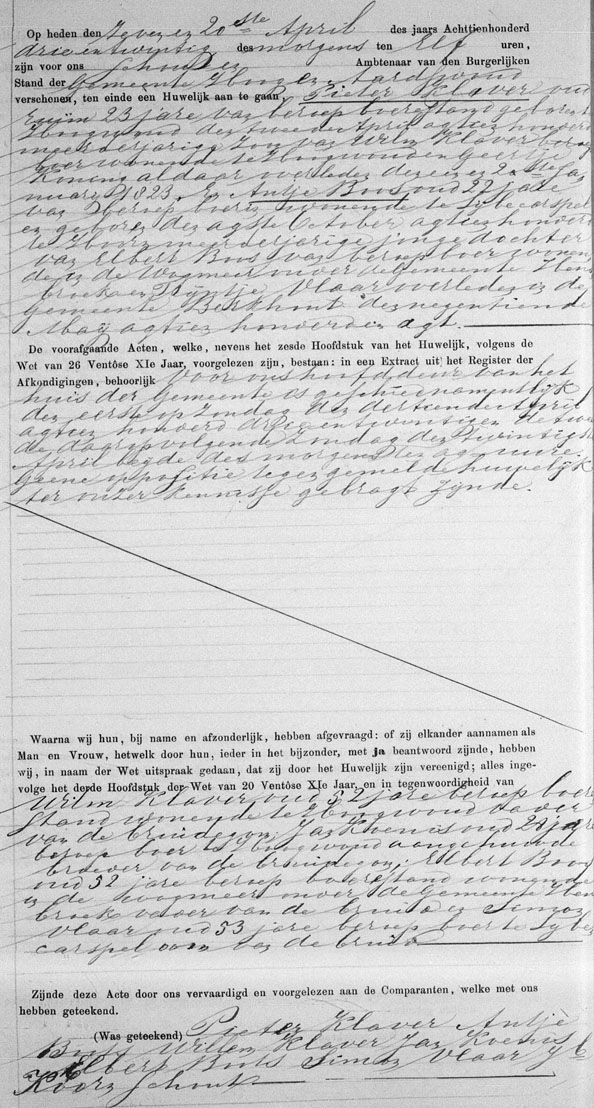 Op heden den Zeven en 20ste April des jaars Achttienhonderd
drie en twintig des morgens ten Elf uren,
zijn voor ons Schout en Ambtenaar van den Burgerlijken
Stand der Gemeente Hoog en Aardswoud
verschenen, ten einde een Huwelijk aan te gaan, Pieter Klaver oud
ruim 23 jare van beroep boerestand geboren t
Hoogwoud den tweede April agtien honderd
meerderjarige zoon van Wilm Klaver beroep
boer wonende te Hoogwoud en Geertje
Koning aldaar overleden den en 20ste Ja
nuari 1823. En Antje Boos oud 22 jare
van beroep boerin wonende te Sijbecarspel
en geboren den agste October agtien honderd
te Hoorn meerderjarige jonge dochter
van Elbert Boos van beroep boer wonen
de in de Wogmeer onder de Gemeente Hens
broek en Trijntje Vlaar overleden in de
gemeente Berkhout den negentiende
Maij agtien honderd en agt.
De voorafgaande Acten, welke, nevens het zesde Hoofdstuk van het Huwelijk, volgens de
Wet van 26 Ventôse XIe Jaar, voorgelezen zijn, bestaan: in een Extract uit het Register der
Afkondigingen, behoorlijk voor ons hoofddeur van het
huis der Gemeente is geschied namentlijk
den eerste op Zondag den dertiende April
agtien honderd drie en twintig en de twee
de daarop volgende Zondag den Twintigste
April beijde des morgens ten agt uure
geene oppositie tegen gemelde huwelijk
ter onzer kennisse gebragt zijnde.
Waarna wij hun, bij name en afzonderlijk, hebben afgevraagd: of zij elkander aannamen als
Man en Vrouw, hetwelk door hun, ieder in het bijzonder, met ja beantwoord zijnde, hebben
wij, in naam der Wet uitspraak gedaan, dat zij door het Huwelijk zijn vereenigd; alles inge-
volge het derde Hoofdstuk der Wet van 20 Ventôse XIe Jaar, en in tegenwoordigheid van
Wilm Klaver oud 52 jare beroep boere
stand wonende te Hoogwoud vader
van de bruidegom, Jan Koenis oud 28 jare
beroep boer te Hoogwoud aangehuwde
broeder van de bruidegom, Elbert Boos
oud 52 jare beroep boerestand wonende
in de wogmeer onder de Gemeente Hens
broek vader van de bruid en Simon
Vlaar oud 53 jare beroep boer te Sijbe
carspel oom van de bruid
Zijnde deze Acte door ons vervaardigd en voorgelezen aan de Comparanten, welke met ons
hebben geteekend.
(Was geteekend) Pieter Klaver Antje
Boos Willem Klaver Jan Koenis
Elbert Boots Simon Vlaar
Koorn Schout